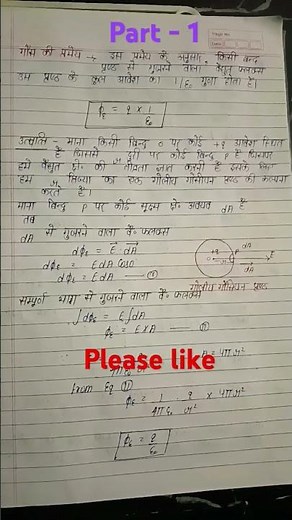 Part - 1
गॉस की प्रमेय → इस प्रमेय के अनुसार किसी बन्द
पृष्ठ से गुजरने वाला वैद्युत फ्लक्स
उस पृष्ठ के कुल आवेश का 1/ε₀ गुना होता है।
ϕE = q × 1/ε₀
उत्पत्ति - माना किसी बिन्दु O पर कोई +q आवेश स्थित
है जिससे दूरी पर कोई बिन्दु P है जिसपर
हमें वैद्युत क्षे॰ की तीव्रता ज्ञात करनी है इसके लिए
हम त्रिज्या का एक गोलीय गॉसियन पृष्ठ की कल्पना
करते है।
माना बिन्दु P पर कोई सूक्ष्म क्षे॰ अवयव dA है
तब
dA से गुजरने वाला वै॰ फ्लक्स
dϕE = E . dA
dϕE = E dA Cos0
dϕE = E dA — ①
गोलीय गॉसियन पृष्ठ
सम्पूर्ण भाग से गुजरने वाला वै॰ फ्लक्स
∫dϕE = E∫dA
ϕE = E×A — ⑪
A = 4πr²
Please like
From Eq ⑪
ϕE = 1/4πε₀ q/r² × 4πr²
ϕE = q/ε₀